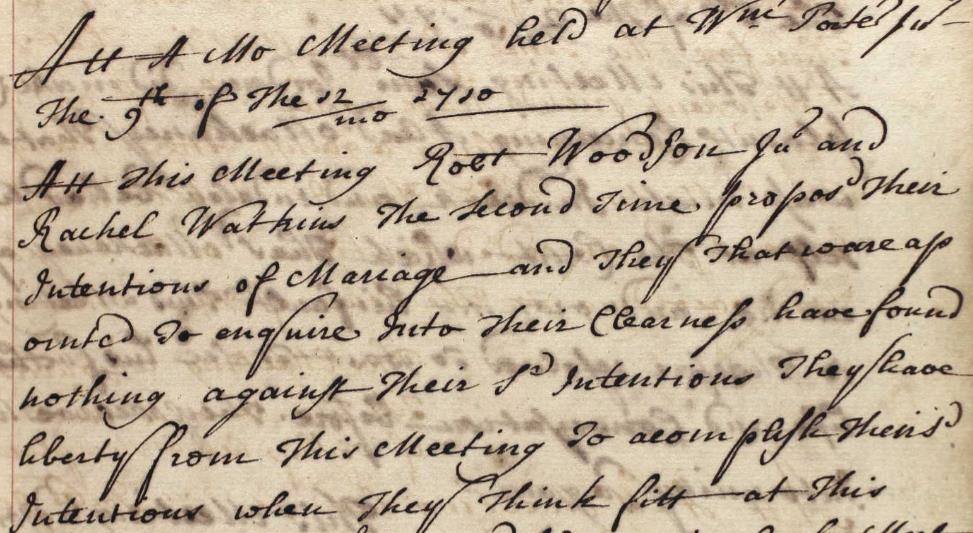 Att A Mo Meeting held at Wm Porter Junr
The 9th of The 12 mo 1710
Att This Meeting Robt Woodson Jur and
Rachel Watkins The Second Time proposd Their
Intentions of Mariage and They That ware ap
ointed To enquire Into Their Clearness have found
nothing against Their Sd Intentions They have
liberty from This Meeting To acomplish Their sd
Intentions when They Think fitt at This